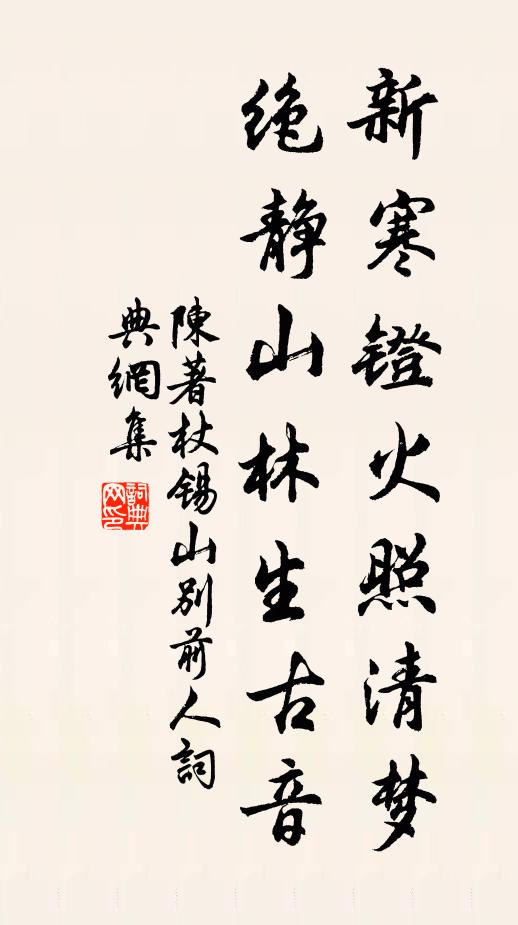 新寒镫火照清梦
绝静山林生古音
陳著杖锡山别前人詞
典網集
詞典
网印